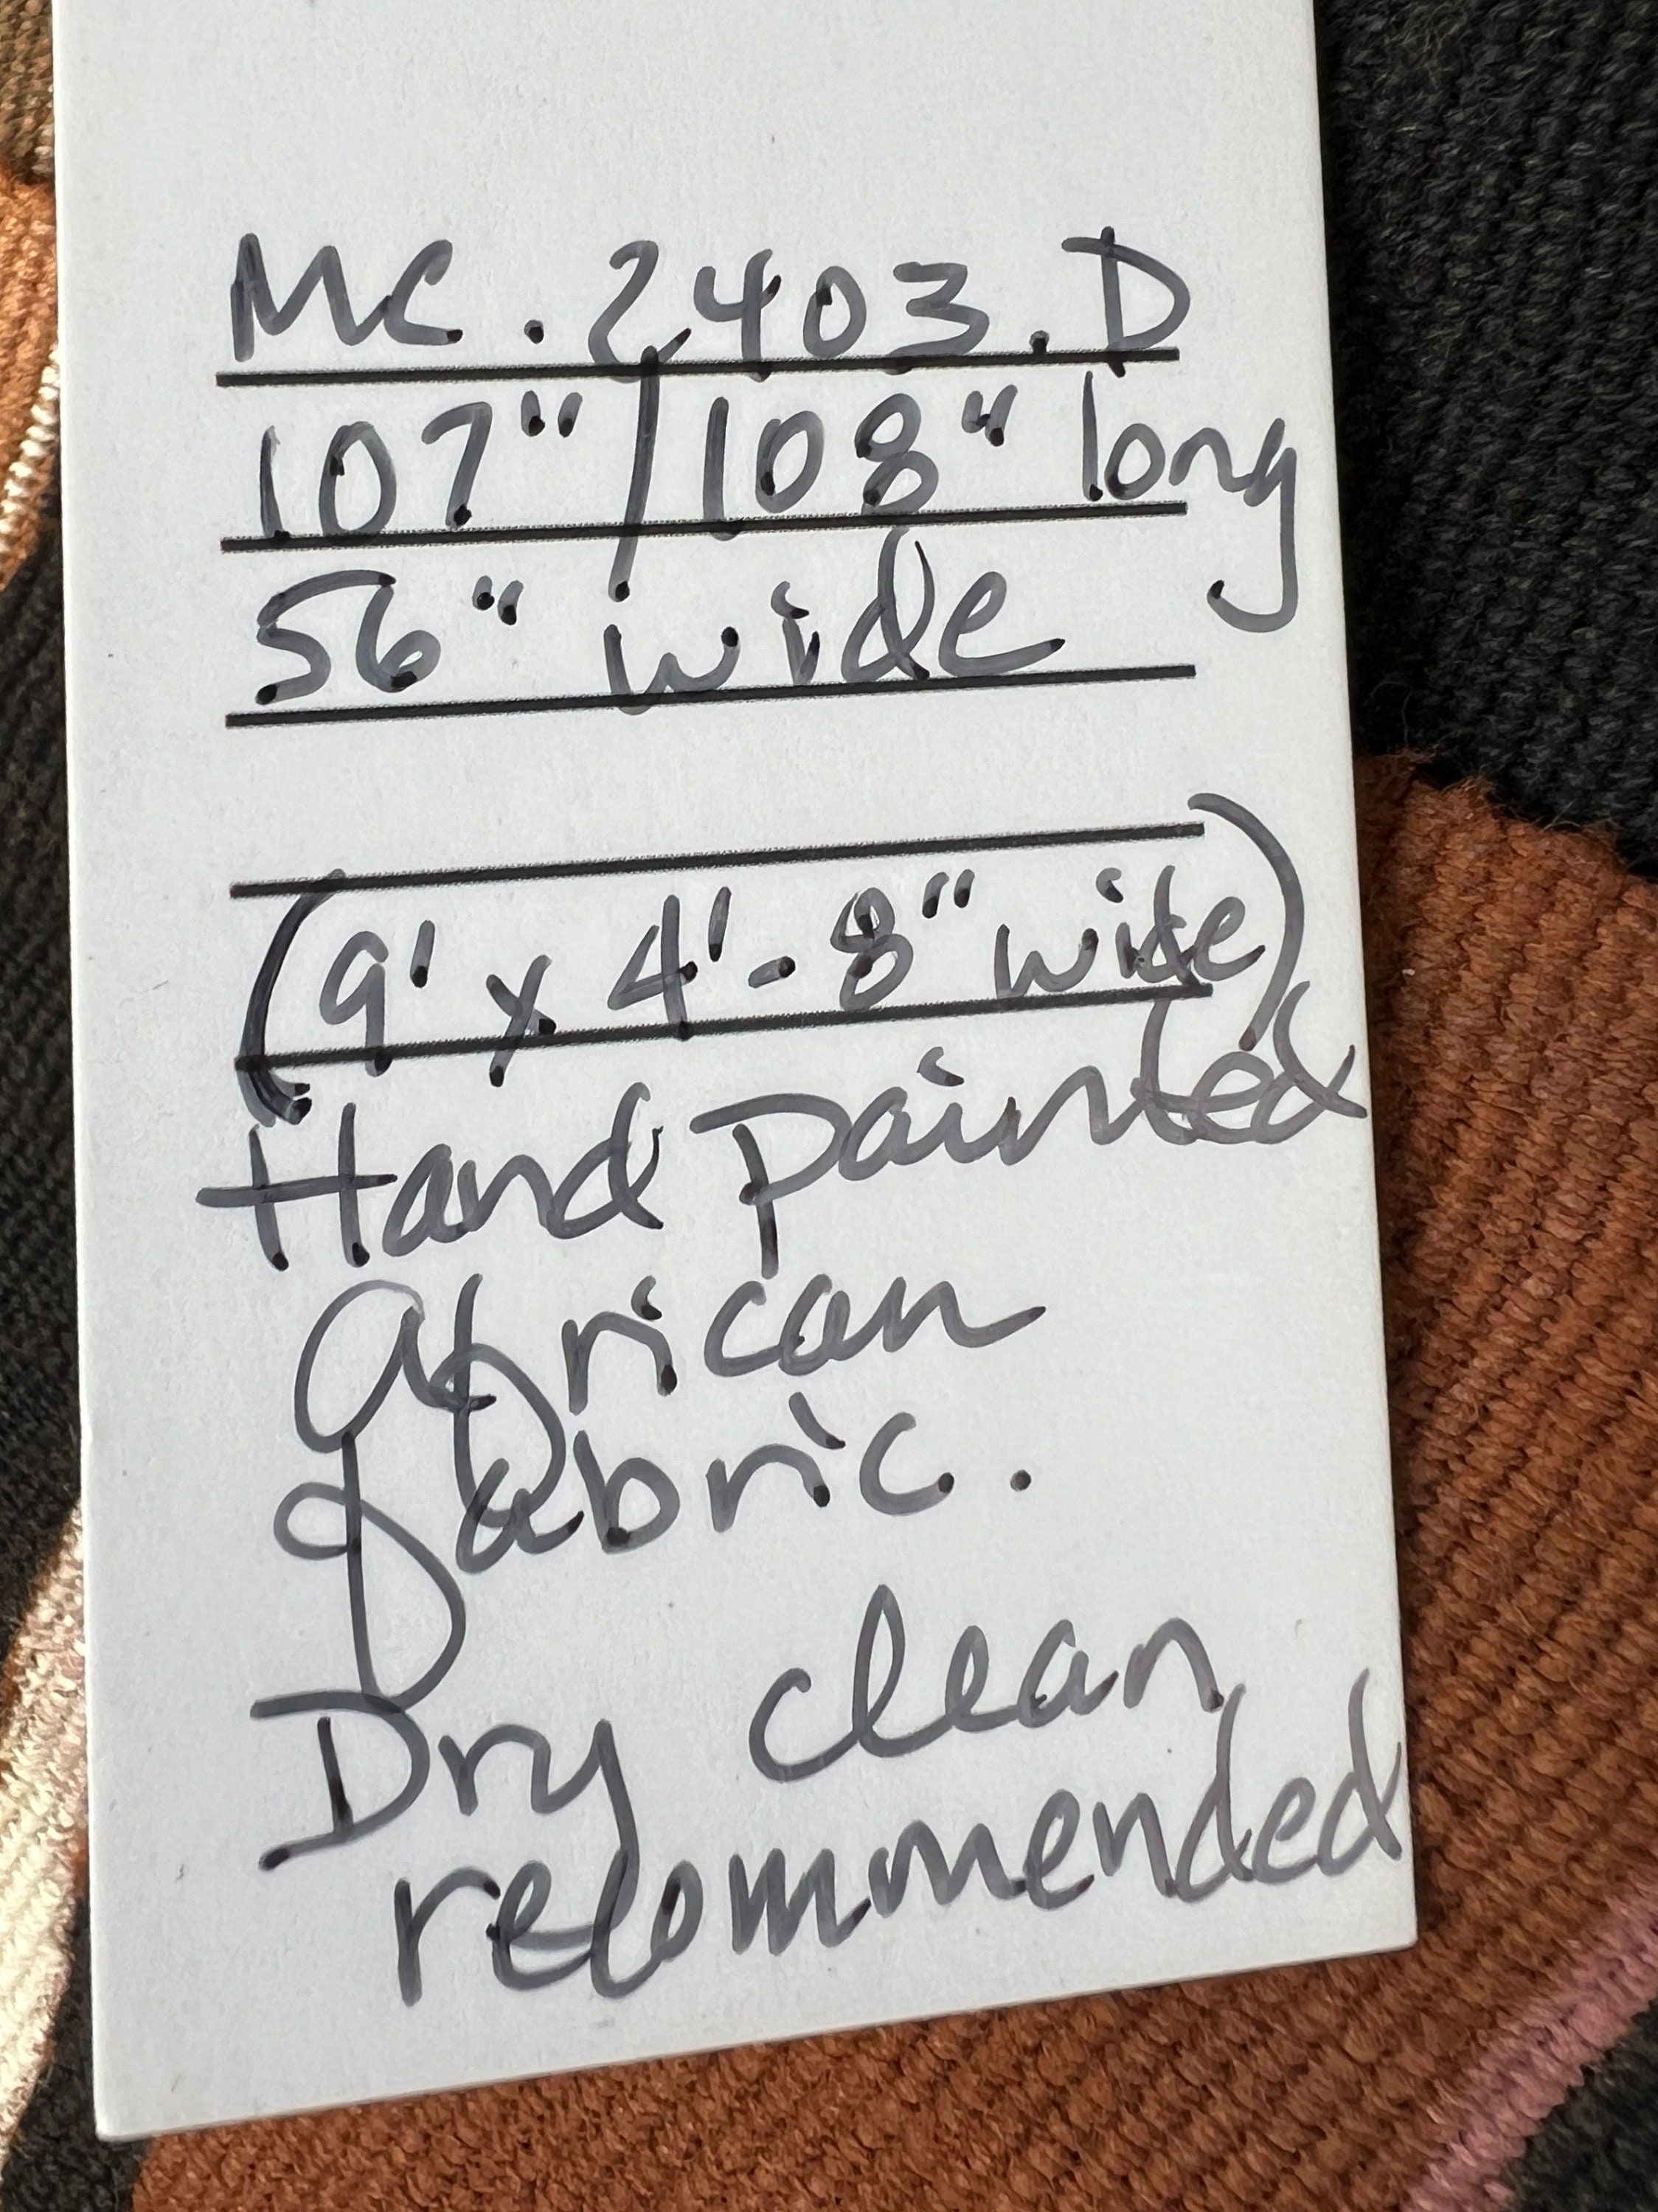 MC. 2403. D
107" / 108" long
56" wide
(9' x 4'-8" wide)
Hand Painted
African
fabric.
Dry clean
recommended